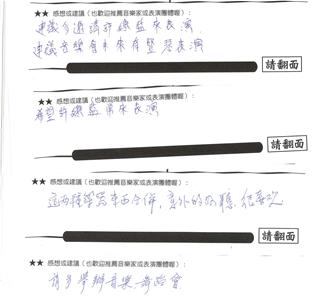 ★★ 感想或建議（也歡迎推薦音樂家或表演團體喔）：
建議多邀請許總監來表演
建議音樂會未來有豎琴表演
請翻面
★★ 感想或建議（也歡迎推薦音樂家或表演團體喔）：
希望許總監常來表演
請翻面
★★ 感想或建議（也歡迎推薦音樂家或表演團體喔）：
這兩種樂器 合併，意外的好聽，很喜歡
請翻面
★★ 感想或建議（也歡迎推薦音樂家或表演團體喔）：
請多舉辦音樂 會